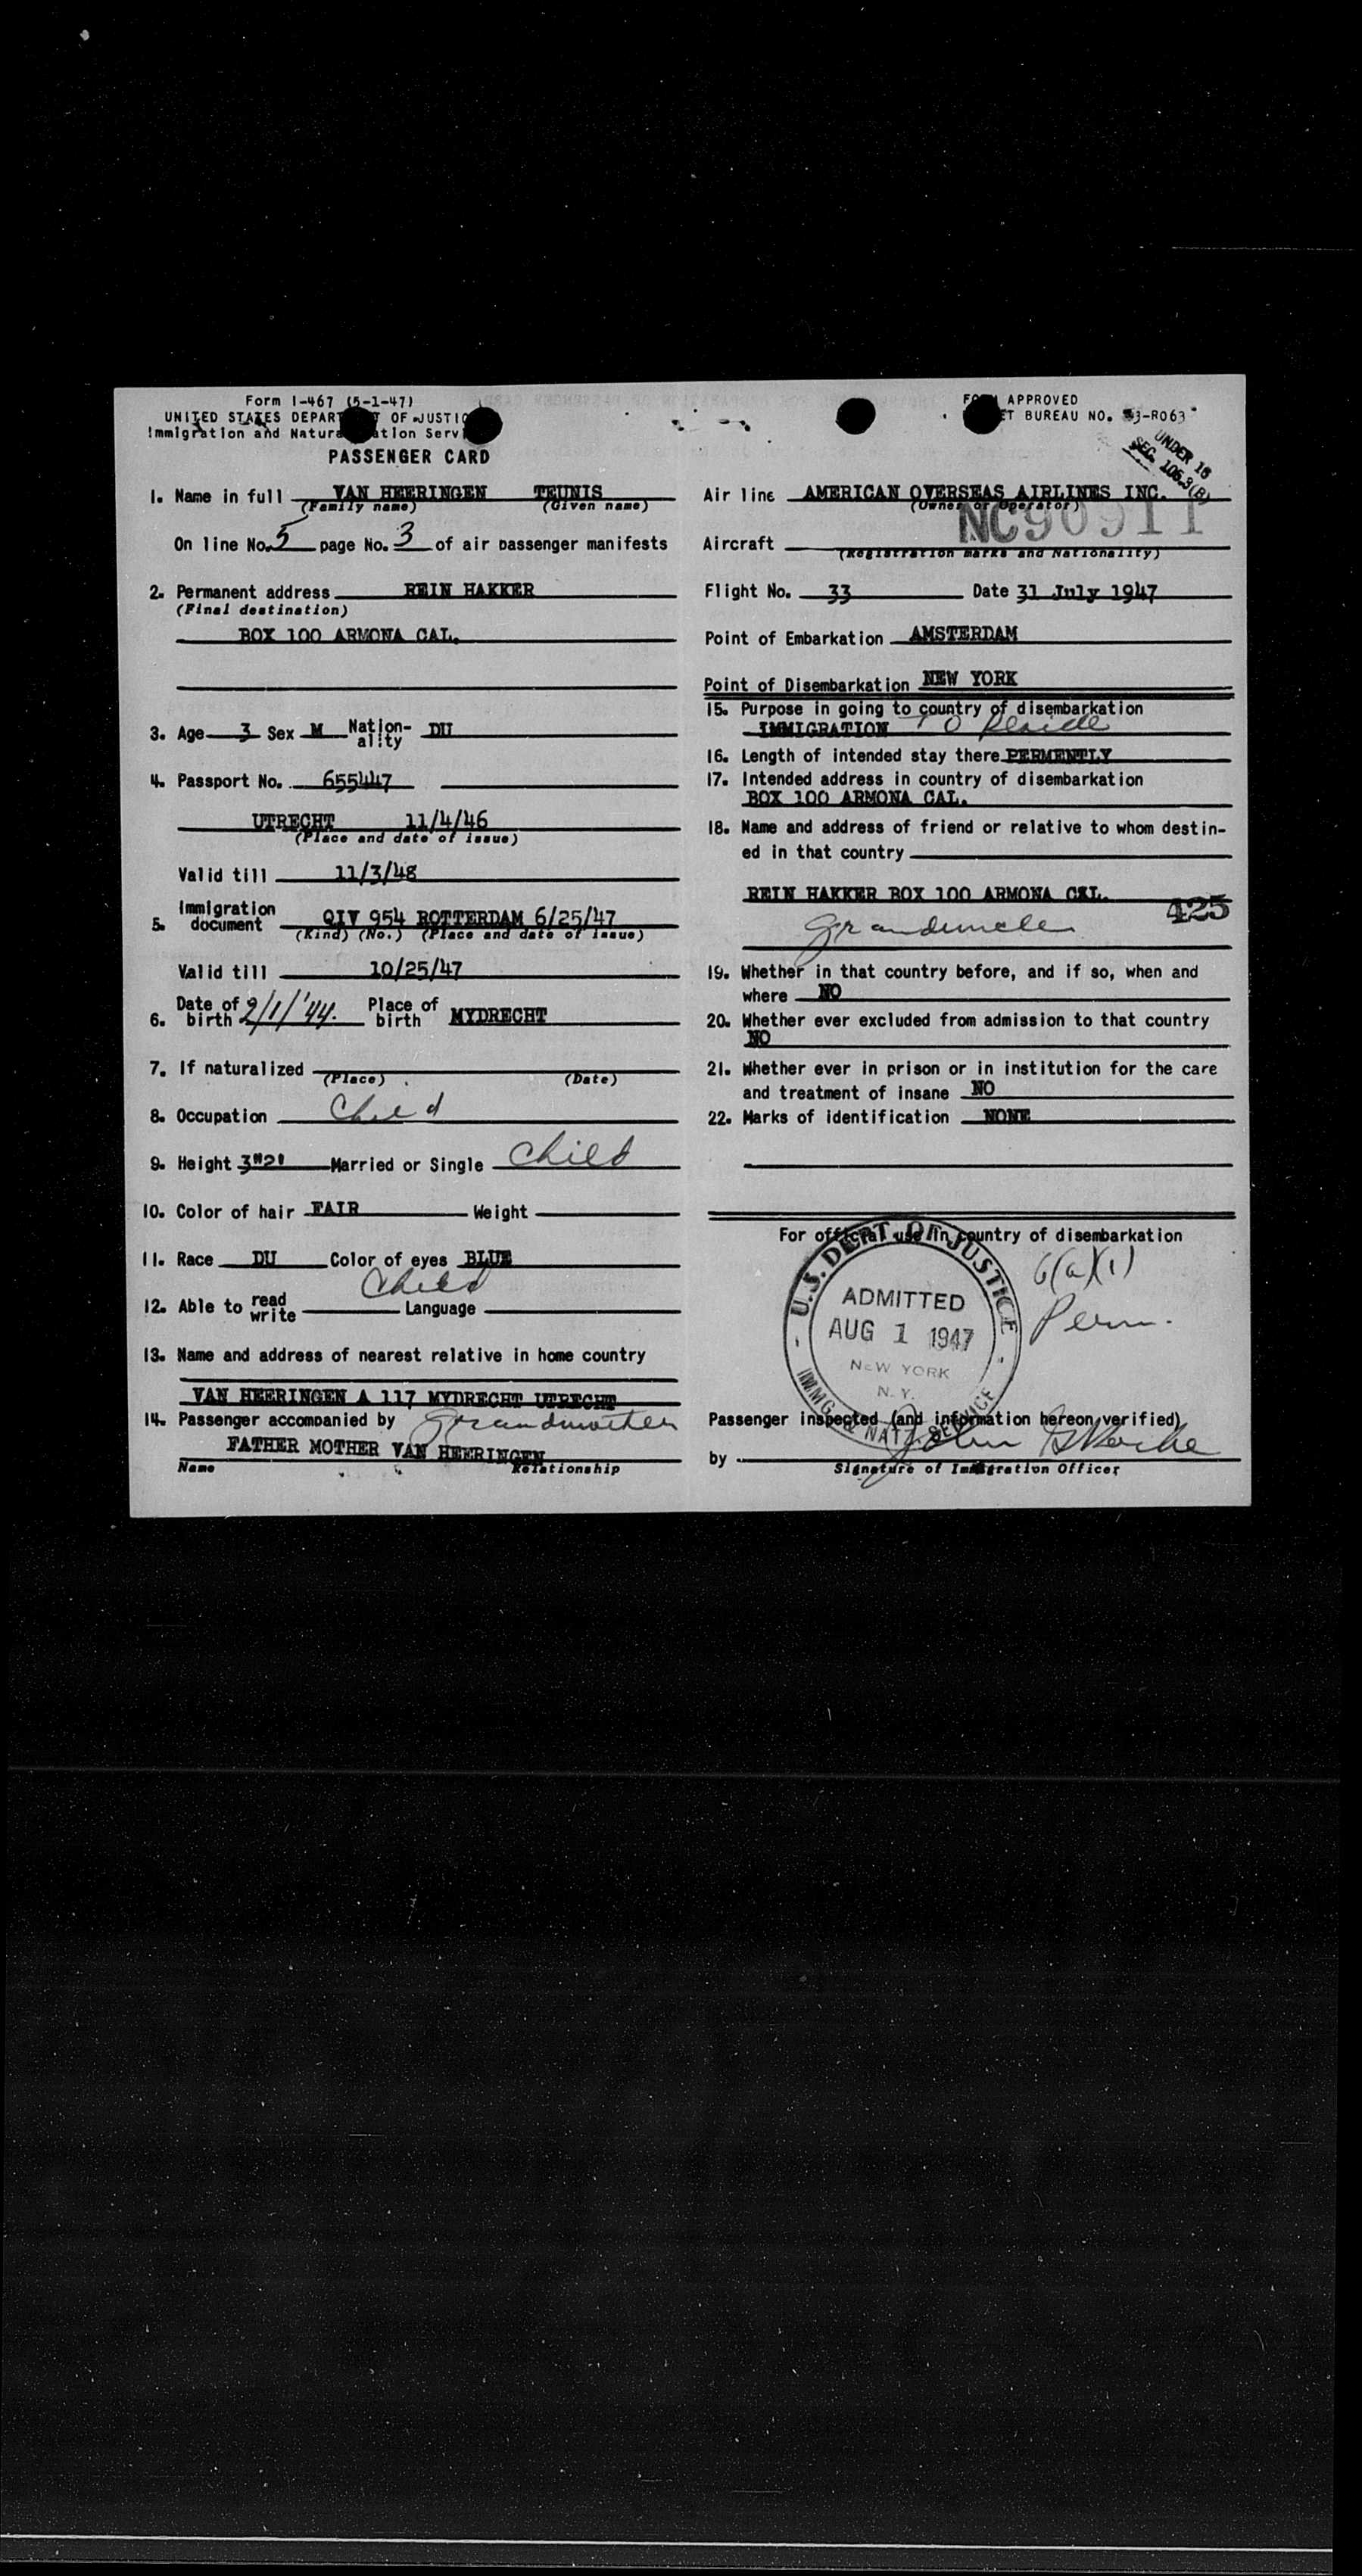 Form I-467 (5-1-47)
UNITED STATES DEPAR T OF JUSTIC
Immigration and Natura ation Serv
PASSENGER CARD
1. Name in full VAN HEERINGEN TEUNIS
(Family name) (Given name)
On line No. 5 page No. 3 of air passenger manifests
2. Permanent address REIN HAKKER
(Final destination)
BOX 100 ARMONA CAL.
3. Age 3 Sex M Nation-ality DU
4. Passport No. 655447
UTRECHT 11/4/46
(Place and date of issue)
Valid till 11/3/48
5. Immigration document QIV 954 ROTTERDAM 6/25/47
(Kind) (No.) (Place and date of issue)
Valid till 10/25/47
6. Date of birth 2/1/'44. Place of birth MYDRECHT
7. If naturalized
(Place) (Date)
8. Occupation Child
9. Height 3"2' Married or Single Child
10. Color of hair FAIR Weight
11. Race DU Color of eyes BLUE
12. Able to read write Child Language
13. Name and address of nearest relative in home country
VAN HEERINGEN A 117 MYDRECHT UTRECHT
14. Passenger accompanied by Grandmother
FATHER MOTHER VAN HEERINGEN
Name Relationship
FO APPROVED
ET BUREAU NO. 43-R063
UNDER 16
SEC. 106.3(B)
Air line AMERICAN OVERSEAS AIRLINES INC.
(Owner or Operator)
NC90911
Aircraft
(Registration marks and Nationality)
Flight No. 33 Date 31 July 1947
Point of Embarkation AMSTERDAM
Point of Disembarkation NEW YORK
15. Purpose in going to country of disembarkation
IMMIGRATION To Reside
16. Length of intended stay there PERMENTLY
17. Intended address in country of disembarkation
BOX 100 ARMONA CAL.
18. Name and address of friend or relative to whom destin-
ed in that country
REIN HAKKER BOX 100 ARMONA CAL.
425
Granduncle
19. Whether in that country before, and if so, when and
where NO
20. Whether ever excluded from admission to that country
NO
21. Whether ever in prison or in institution for the care
and treatment of insane NO
22. Marks of identification NONE
For official use in country of disembarkation
U.S. DEPT. OF JUSTICE
ADMITTED
AUG 1 1947
NEW YORK
N.Y.
IMMIG. & NATZ. SERVICE
6(a)(1)
Perm.
Passenger inspected (and information hereon verified)
by John
Signature of Immigration Officer